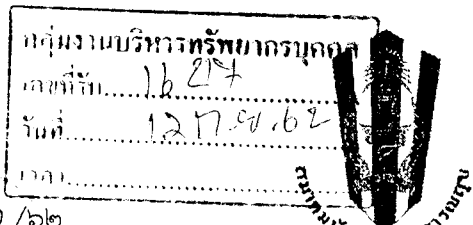 กลุ่มงานบริหารทรัพยากรบุคคล
เลขที่รับ..... 1627
วันที่..... 12 ก.ย. 62
เวลา.....
/๒๒
สมาคม